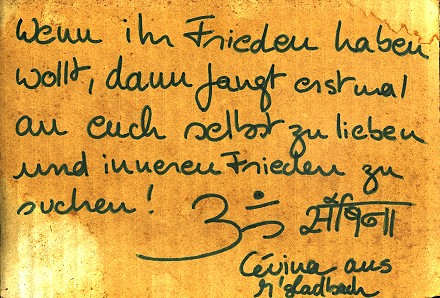 Wenn ihr Frieden haben
wollt, dann fangt erst mal
an euch selbst zu lieben
und inneren Frieden zu
suchen! ॐ
Cévina aus
M'gladbach